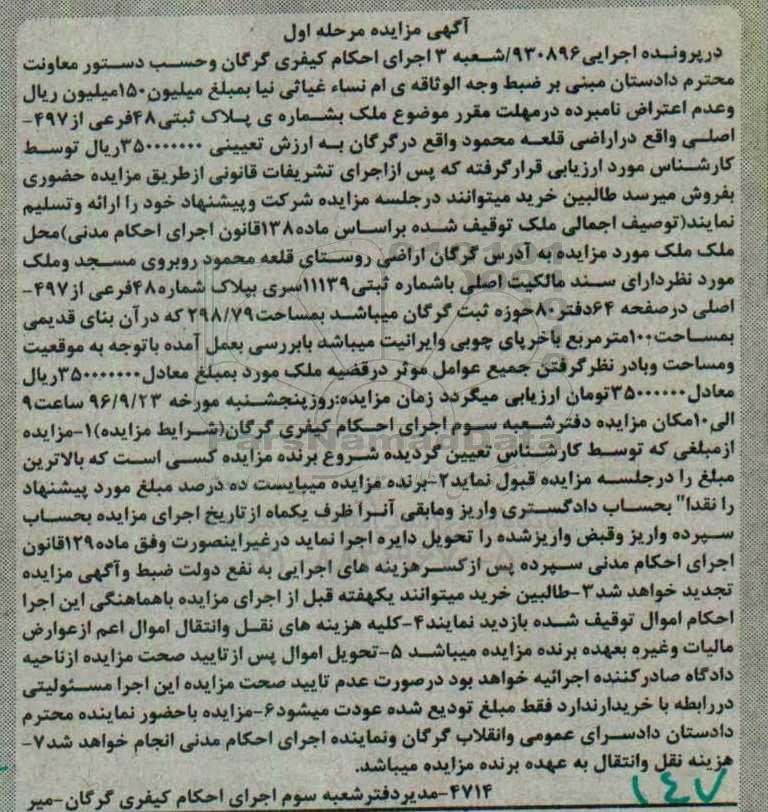 آگهی مزایده مرحله اول
درپرونده اجرایی۹۳۰۸۹۶/شعبه ۳ اجرای احکام کیفری گرگان وحسب دستور معاونت
محترم دادستان مبنی بر ضبط وجه الوثاقه ی ام نساء غیاثی نیا بمبلغ میلیون۱۵۰میلیون ریال
وعدم اعتراض نامبرده درمهلت مقرر موضوع ملک بشماره ی پلاک ثبتی۴۸فرعی از۴۹۷-
اصلی واقع دراراضی قلعه محمود واقع درگرگان به ارزش تعیینی ۳۵۰۰۰۰۰۰۰ریال توسط
کارشناس مورد ارزیابی قرارگرفته که پس ازاجرای تشریفات قانونی ازطریق مزایده حضوری
بفروش میرسد طالبین خرید میتوانند درجلسه مزایده شرکت وپیشنهاد خود را ارائه وتسلیم
نمایند(توصیف اجمالی ملک توقیف شده براساس ماده۱۳۸قانون اجرای احکام مدنی)محل
ملک ملک مورد مزایده به آدرس گرگان اراضی روستای قلعه محمود روبروی مسجد وملک
مورد نظردارای سند مالکیت اصلی باشماره ثبتی۱۱۱۳۹سری بپلاک شماره۴۸فرعی از۴۹۷-
اصلی درصفحه ۶۴دفتر۸۰حوزه ثبت گرگان میباشد بمساحت۲۹۸/۷۹ که درآن بنای قدیمی
بمساحت۱۰۰مترمربع باخرپای چوبی وایرانیت میباشد بابررسی بعمل آمده باتوجه به موقعیت
ومساحت وبادر نظرگرفتن جمیع عوامل موثر درقضیه ملک مورد بمبلغ معادل۳۵۰۰۰۰۰۰۰ریال
معادل۳۵۰۰۰۰۰۰تومان ارزیابی میگردد زمان مزایده:روزپنجشنبه مورخه ۹۶/۹/۲۳ ساعت۹
الی۱۰مکان مزایده دفترشعبه سوم اجرای احکام کیفری گرگان(شرایط مزایده)۱-مزایده
ازمبلغی که توسط کارشناس تعیین گردیده شروع برنده مزایده کسی است که بالاترین
مبلغ را درجلسه مزایده قبول نماید۲-برنده مزایده میبایست ده درصد مبلغ مورد پیشنهاد
را نقدا" بحساب دادگستری واریز ومابقی آنرا ظرف یکماه ازتاریخ اجرای مزایده بحساب
سپرده واریز وقبض واریزشده را تحویل دایره اجرا نماید درغیراینصورت وفق ماده۱۲۹قانون
اجرای احکام مدنی سپرده پس ازکسرهزینه های اجرایی به نفع دولت ضبط وآگهی مزایده
تجدید خواهد شد۳-طالبین خرید میتوانند یکهفته قبل از اجرای مزایده باهماهنگی این اجرا
احکام اموال توقیف شده بازدید نمایند۴-کلیه هزینه های نقل وانتقال اموال اعم ازعوارض
مالیات وغیره بعهده برنده مزایده میباشد ۵-تحویل اموال پس ازتایید صحت مزایده ازناحیه
دادگاه صادرکننده اجرائیه خواهد بود درصورت عدم تایید صحت مزایده این اجرا مسئولیتی
دررابطه با خریدارندارد فقط مبلغ تودیع شده عودت میشود۶-مزایده باحضور نماینده محترم
دادستان دادسرای عمومی وانقلاب گرگان ونماینده اجرای احکام مدنی انجام خواهد شد۷-
هزینه نقل وانتقال به عهده برنده مزایده میباشد.
۴۷۱۴-مدیردفترشعبه سوم اجرای احکام کیفری گرگان-میر
۱۴۷
ParsNamadData